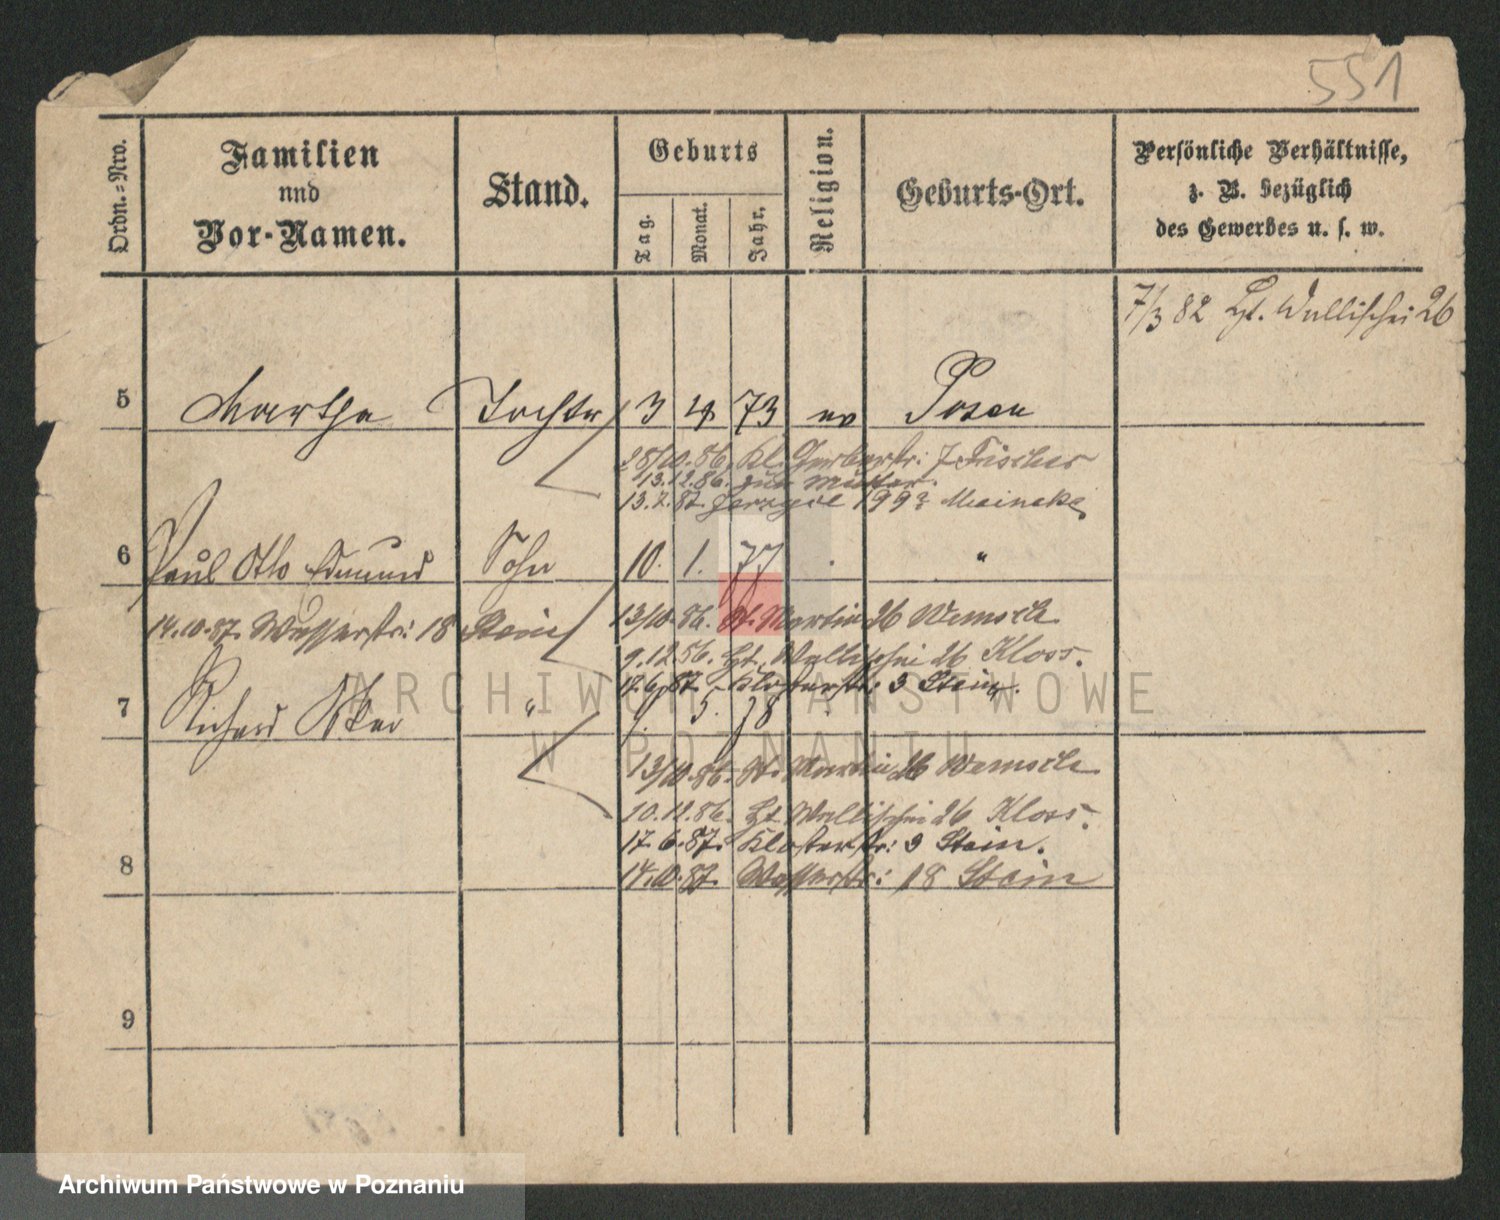 551
Ordn.=Nro.
Familien
und
Vor-Namen.
Stand.
Geburts
Tag.
Monat.
Jahr.
Religion.
Geburts-Ort.
Persönliche Verhältnisse,
z. B. bezüglich
des Gewerbes u. s. w.
7/3 82 Wallischei 26
5 Martha Tochter 3 73 ev Posen
28/10.86. Kl. Gerberstr: 7 Fischer
13.12.86. zur Mutter.
13.7.87. Jerzyce 199 Meineke
6 Paul Otto Edmund Sohn 10. 1. 77 . "
14.10.87. Wasserstr: 18 Stein 13/10.86. St. Martin 26 Wemsek
9.12.86. Wallischei 26 Kloss.
17.6.87. Klosterstr: 3 Stein.
7 Richard Oskar " 5. 78 . "
13/10.86. St. Martin 26 Wemsek
10.12.86. Wallischei 26 Kloss.
17.6.87. Klosterstr: 3 Stein.
14.10.87. Wasserstr: 18 Stein
8
9
ARCHIWUM PAŃSTWOWE
W POZNANIU
Archiwum Państwowe w Poznaniu